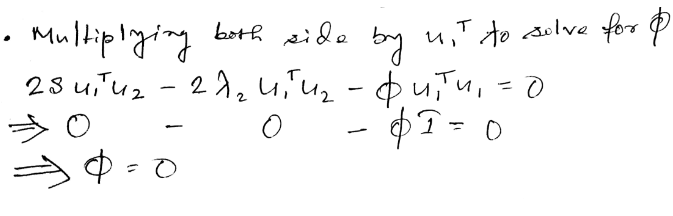 • Multiplying both side by u₁ᵀ to solve for ϕ
2S u₁ᵀu₂ - 2λ₂ u₁ᵀu₂ - ϕ u₁ᵀu₁ = 0
⇒ 0 - 0 - ϕ I = 0
⇒ ϕ = 0